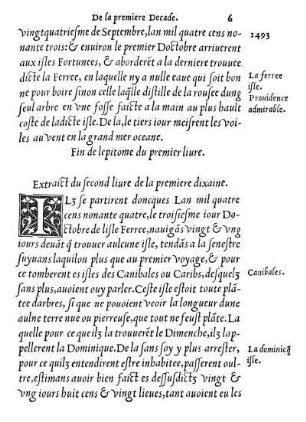 De la premiere Decade. 6
vingtquatriesme de Septembre, lan mil quatre cens no- 1493
nante trois: & enuiron le premier Doctobre arriuerent
aux isles Fortunees, & aborderēt a la derniere trouuee
dicte la Ferree, en laquelle ny a nulle eaue qui soit bon La ferree
ne pour boire sinon celle q̄lle distille de la rousee dung isle.
seul arbre en vne fosse faicte a la main au plus hault Prouidence
coste de ladicte isle. De la, le tiers iour meisrent les voi- admirable.
les au vent en la grand mer oceane.
Fin de lepitome du premier liure.
Extraict du second liure de la premiere dixaine.
ILz se partirent doncques Lan mil quatre
cens nonante quatre, le troisiesme iour Do-
ctobre de lisle Ferree, nauigās vingt & vng
iours deuāt q̄ trouuer aulcune isle, tendās a la senestre
suyuans laquilon plus que au premier voyage, & pour
ce tomberent es isles des Canibales ou Caribs, desq̄lz Canibales.
sans plus, auoient ouy parler. Ceste isle estoit toute plā-
tee darbres, si que ne pouoient veoir la longueur dune
aulne terre nue ou pierreuse, que tout ne feust plāte. La
quelle pour ce quilz la trouuerēt le Dimenche, ilz lap-
pellerent la Dominique. De la sans soy y plus arrester, La dominicq̄
pour ce quilz entendirent estre inhabitee, passerent oul- isle.
tre, estimans auoir bien faict es dessusdictz vingt &
vng iours huit cens & vingt lieues, tant auoient eu les